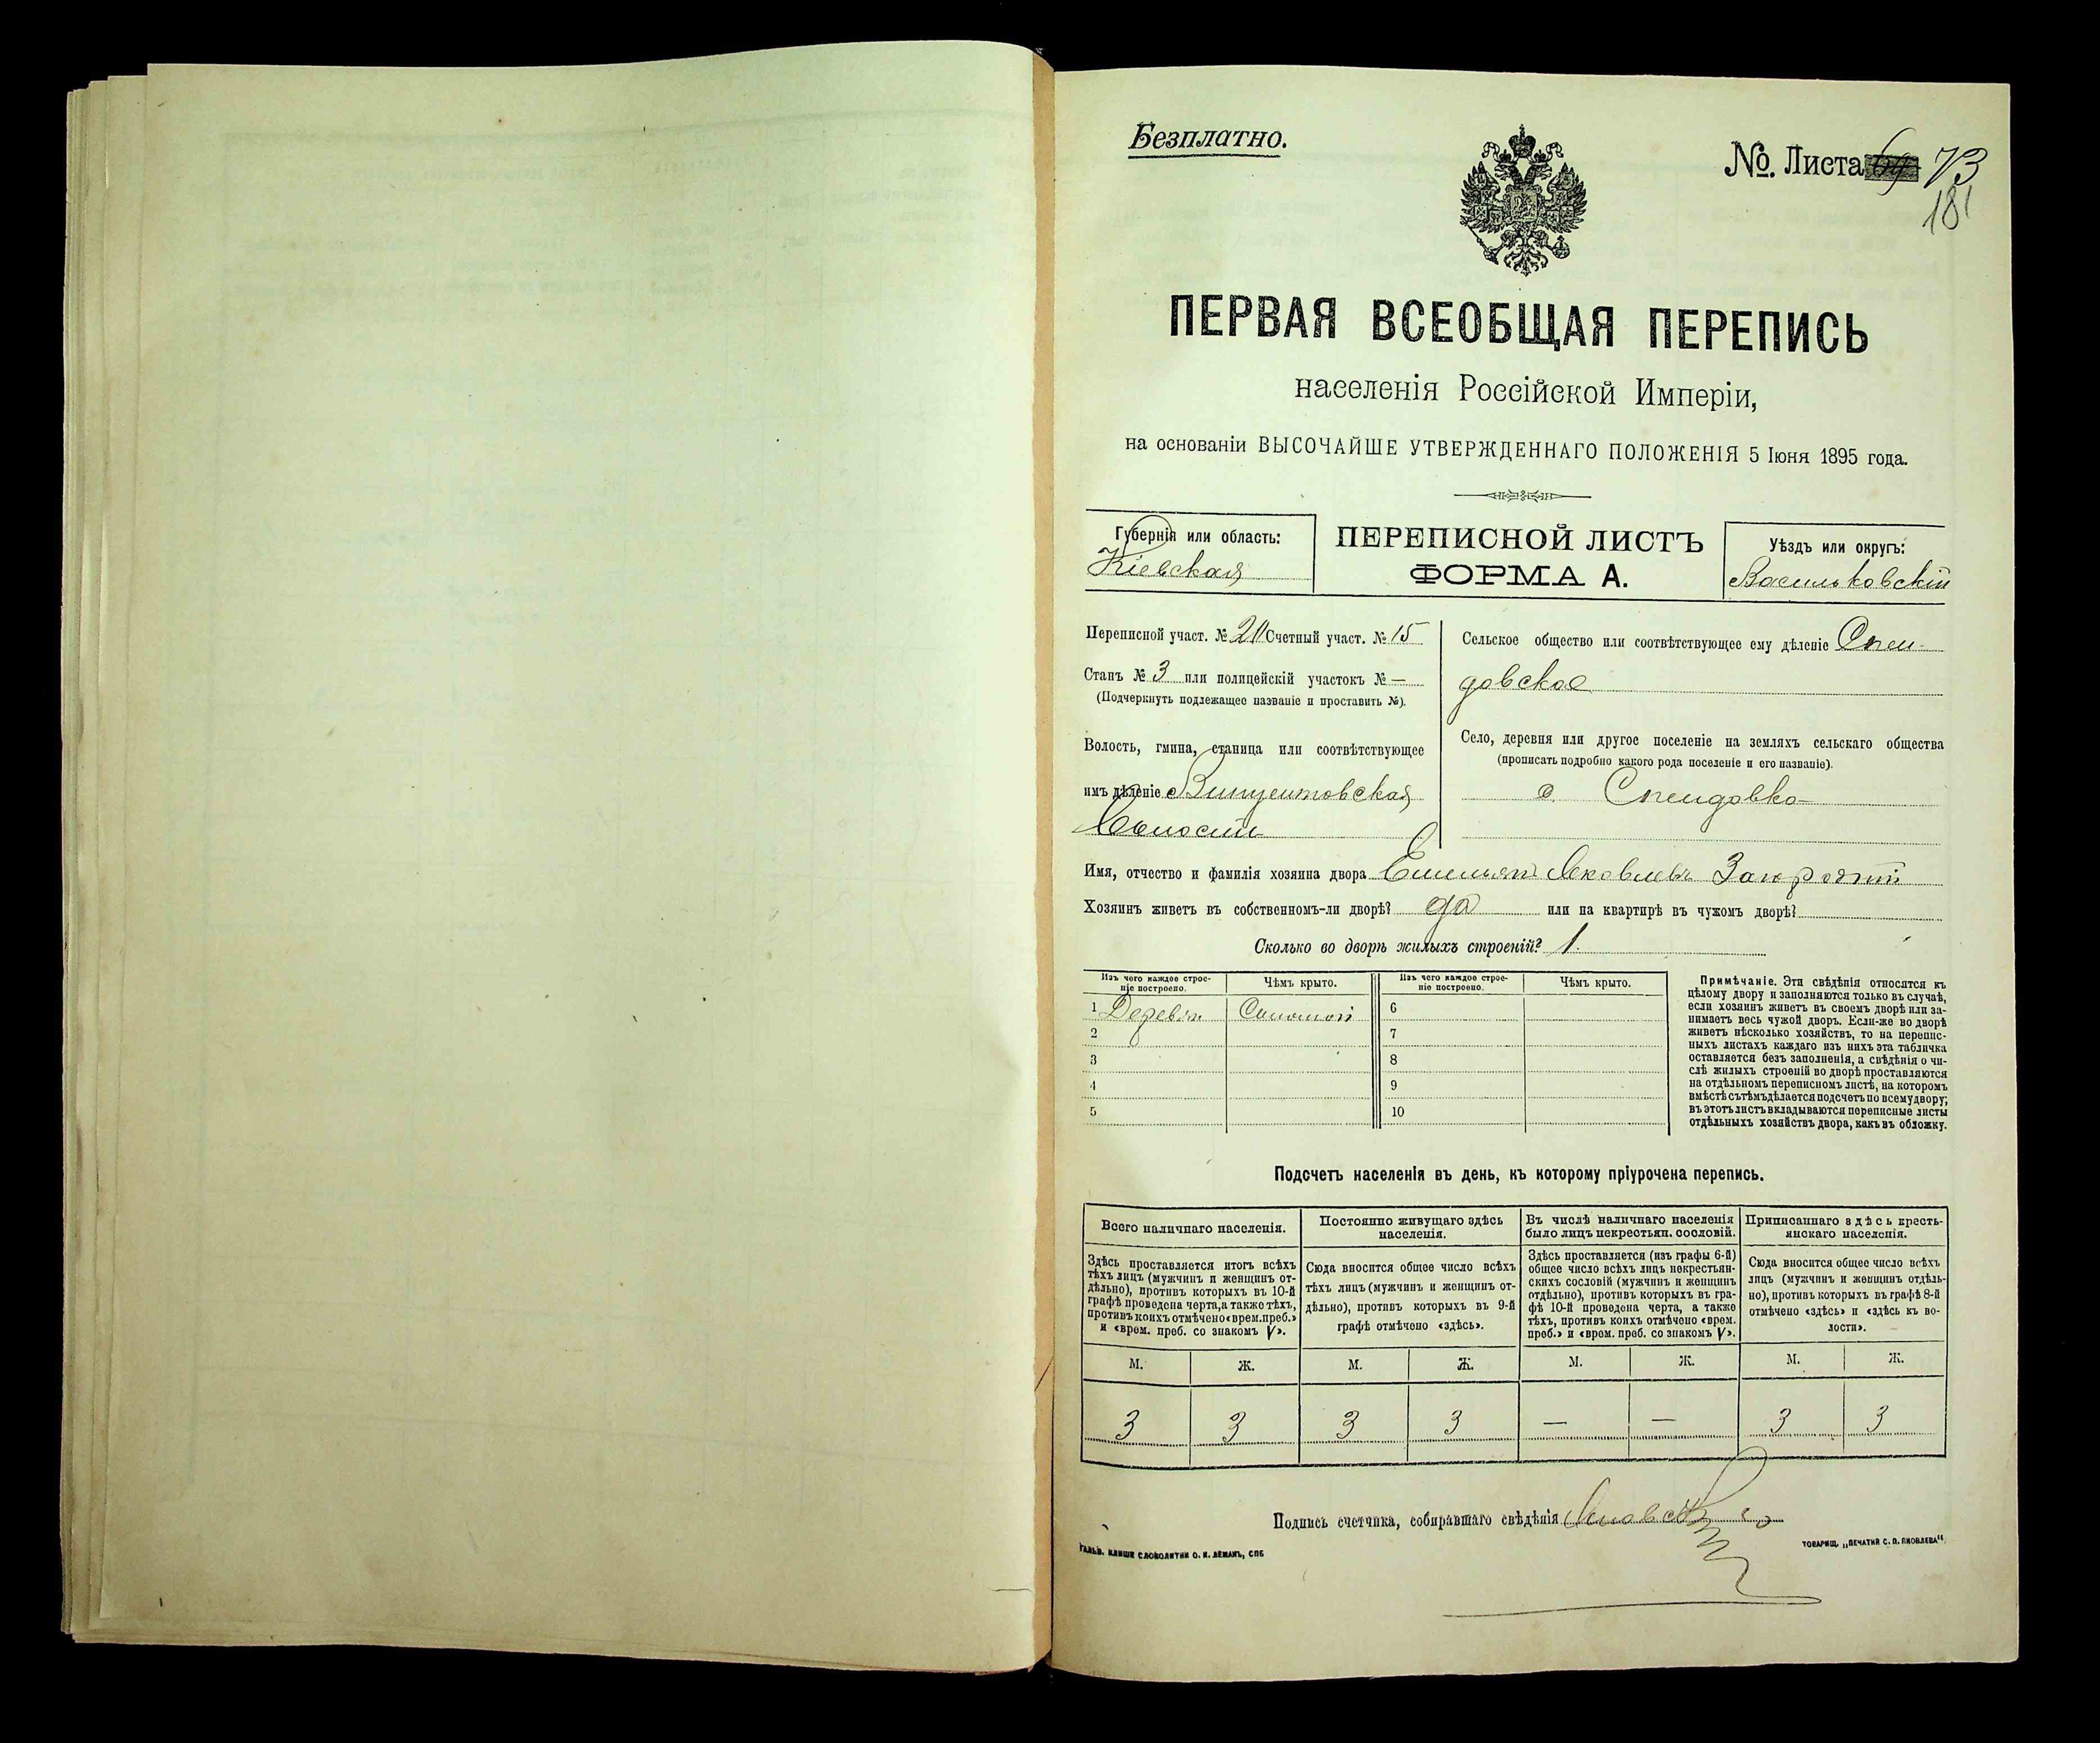 Безплатно.
№. Листа 69 73
181
ПЕРВАЯ ВСЕОБЩАЯ ПЕРЕПИСЬ
населенія Россійской Имперіи,
на основаніи ВЫСОЧАЙШЕ УТВЕРЖДЕННАГО ПОЛОЖЕНІЯ 5 Іюня 1895 года.
Губернія или область:
Кіевская
ПЕРЕПИСНОЙ ЛИСТЪ
ФОРМА А.
Уѣздъ или округъ:
Васильковскій
Переписной участ. № 20 Счетный участ. № 15
Станъ № 3 или полицейскій участокъ № —
(Подчеркнуть подлежащее названіе и проставить №).
Волость, гмина, станица или соотвѣтствующее
имъ дѣленіе Винцентовская
Волость
Сельское общество или соотвѣтствующее ему дѣленіе Спен-
довское
Село, деревня или другое поселеніе на земляхъ сельскаго общества
(прописать подробно какого рода поселеніе и его названіе).
с. Спендовка
Имя, отчество и фамилія хозяина двора Емельянъ Яковлевъ
Хозяинъ живетъ въ собственномъ-ли дворѣ? да или на квартирѣ въ чужомъ дворѣ?
Сколько во дворѣ жилыхъ строеній? 1.
Изъ чего каждое строе-
ніе построено.
Чѣмъ крыто.
Изъ чего каждое строе-
ніе построено.
Чѣмъ крыто.
1 Дерев. Соломой 6
2 7
3 8
4 9
5 10
Примѣчаніе. Эти свѣдѣнія относятся къ
цѣлому двору и заполняются только въ случаѣ,
если хозяинъ живетъ въ своемъ дворѣ или за-
нимаетъ весь чужой дворъ. Если-же во дворѣ
живетъ нѣсколько хозяйствъ, то на перепис-
ныхъ листахъ каждаго изъ нихъ эта табличка
оставляется безъ заполненія, а свѣдѣнія о чи-
слѣ жилыхъ строеній во дворѣ проставляются
на отдѣльномъ переписномъ листѣ, на которомъ
вмѣстѣ съ тѣмъ дѣлается подсчетъ по всему двору;
въ этотъ листъ вкладываются переписные листы
отдѣльныхъ хозяйствъ двора, какъ въ обложку.
Подсчетъ населенія въ день, къ которому пріурочена перепись.
Всего наличнаго населенія.
Здѣсь проставляется итогъ всѣхъ
тѣхъ лицъ (мужчинъ и женщинъ от-
дѣльно), противъ которыхъ въ 10-й
графѣ проведена черта, а также тѣхъ,
противъ коихъ отмѣчено «врем. преб.»
и «врем. преб. со знакомъ V».
Постоянно живущаго здѣсь
населенія.
Сюда вносится общее число всѣхъ
тѣхъ лицъ (мужчинъ и женщинъ от-
дѣльно), противъ которыхъ въ 9-й
графѣ отмѣчено «здѣсь».
Въ числѣ наличнаго населенія
было лицъ некрестьян. сословій.
Здѣсь проставляется (изъ графы 6-й)
общее число всѣхъ лицъ некрестьян-
скихъ сословій (мужчинъ и женщинъ
отдѣльно), противъ которыхъ въ гра-
фѣ 10-й проведена черта, а также
тѣхъ, противъ коихъ отмѣчено «врем.
преб.» и «врем. преб. со знакомъ V».
Приписаннаго здѣсь кресть-
янскаго населенія.
Сюда вносится общее число всѣхъ
лицъ (мужчинъ и женщинъ отдѣль-
но), противъ которыхъ въ графѣ 8-й
отмѣчено «здѣсь» и «здѣсь къ во-
лости».
М. Ж. М. Ж. М. Ж. М. Ж.
3 3 3 3 — — 3 3
Подпись счетчика, собиравшаго свѣдѣнія
ГАЛЬВ. КЛИШЕ СЛОВОЛИТНИ О. И. ЛЕМАНЪ, СПБ
ТОВАРИЩ. „ПЕЧАТНЯ С. П. ЯКОВЛЕВА“.